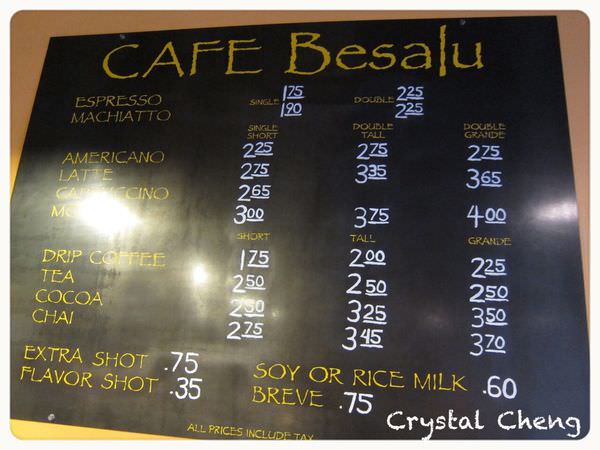 CAFE Besalu
ESPRESSO SINGLE 1.75 DOUBLE 2.25
MACHIATTO 1.90 2.25
SINGLE SHORT DOUBLE TALL DOUBLE GRANDE
AMERICANO 2.25 2.75 2.75
LATTE 2.75 3.35 3.65
CAPPUCCINO 2.65
3.00 3.75 4.00
SHORT TALL GRANDE
DRIP COFFEE 1.75 2.00 2.25
TEA 2.50 2.50 2.50
COCOA 2.50 3.25 3.50
CHAI 2.75 3.45 3.70
EXTRA SHOT .75
FLAVOR SHOT .35
SOY OR RICE MILK .60
BREVE .75
ALL PRICES INCLUDE TAX
Crystal Cheng